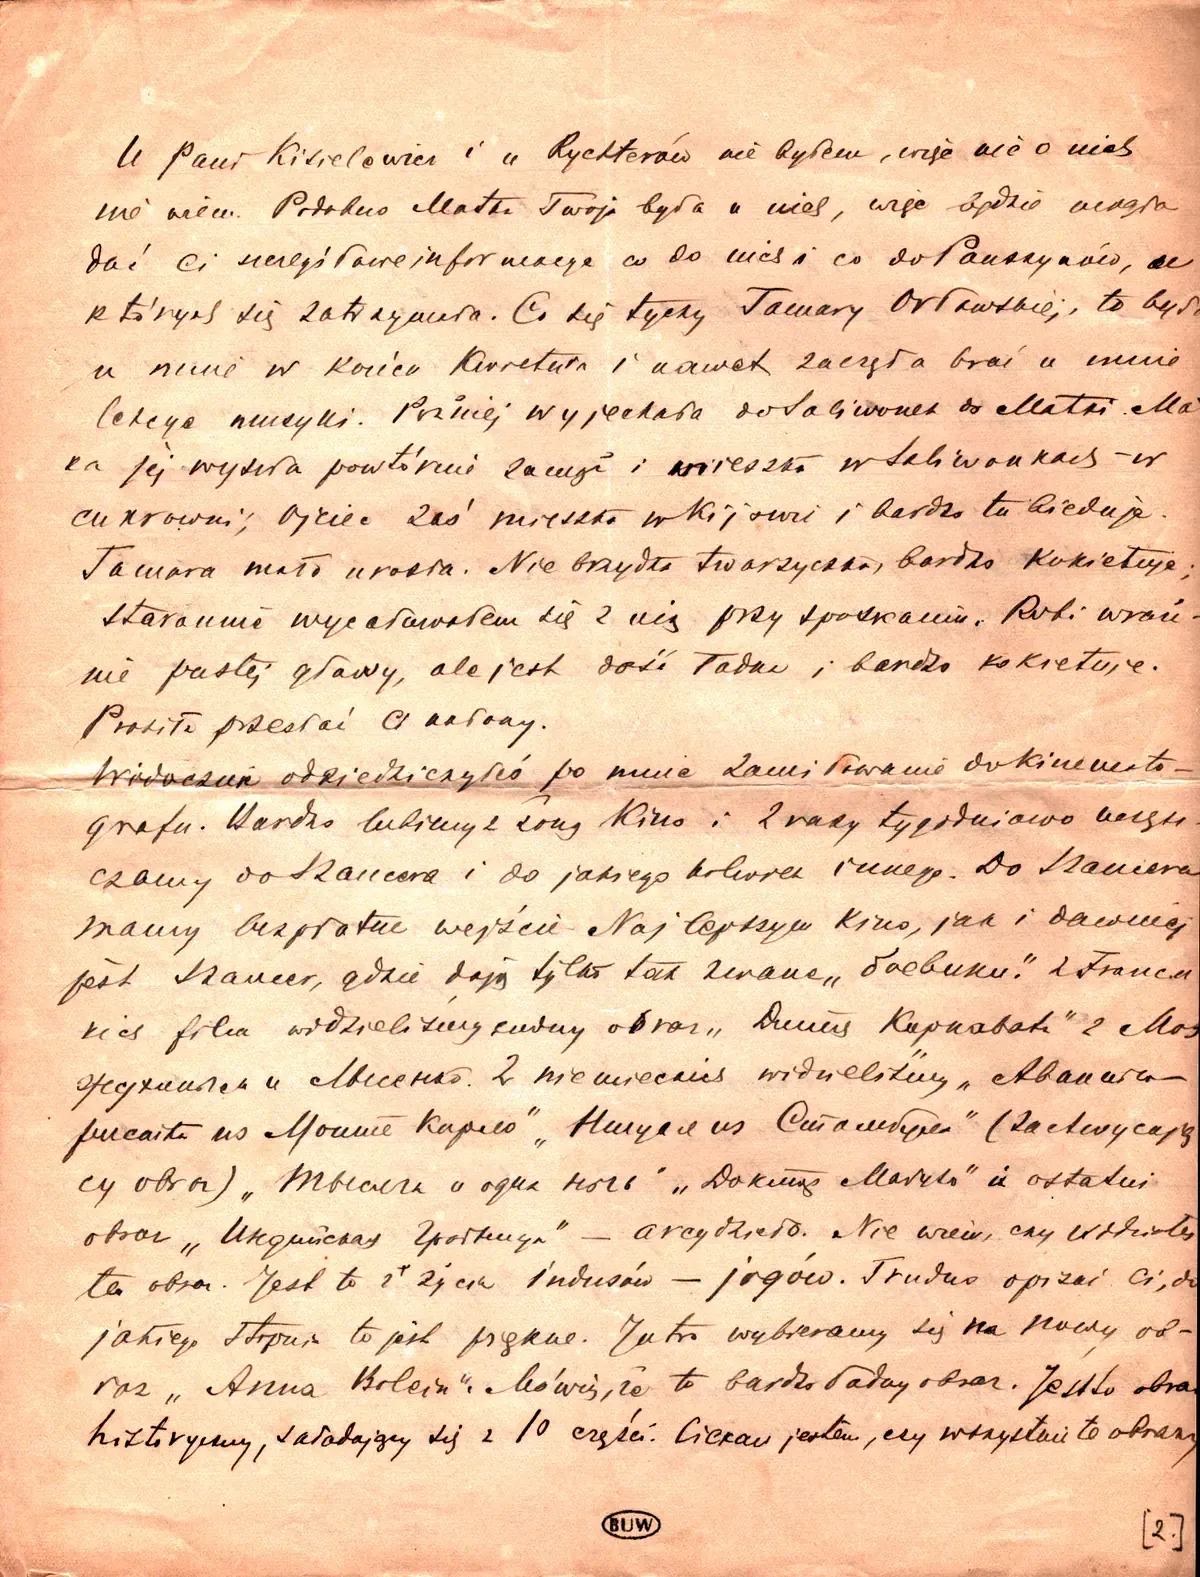 U Pani Kisielewicz i u Rychterów nie byłem, więc nic o nich
nie wiem. Podobno Matka Twoja była u nich, więc będzie mogła
dać Ci szczegółowe informacye co do nich i co do Pauszynów, u
których się zatrzymała. Co się tyczy Tamary Orławskiej, to była
u mnie w końcu Kwietnia i nawet zaczęła brać u mnie
lekcye muzyki. Później wyjechała do Saliwonek do Matki. Mat
ka jej wyszła powtórnie zamąż i mieszka w Saliwonkach – w
cukrowni; Ojciec zaś mieszka w Kijowie i bardzo tu bieduje.
Tamara mało urosła. Nie brzydka twarzyczka, bardzo kokietuje;
starannie wycałowałem się z nią przy spotkaniu. Robi wraże-
nie pustej głowy, ale jest dość ładna i bardzo kokietuje.
Prosiła przesłać Ci ukłony.
Widocznie odziedziczyłeś po mnie zamiłowanie do kinemato-
grafu. Bardzo lubimy z żoną Kino i 2 razy tygodniowo uczęsz-
czamy do Szancera i do jakiego kolwiek innego. Do Szancera
mamy bezpłatne wejście. Najlepszym Kino, jak i dawniej
jest Szancer, gdzie dają tylko tak zwane „боевики". Z Francu
kich film widzieliśmy cudny obraz „Дитя Карнавала" z Моз
жухиным и Лысенко. Z niemieckich widzieliśmy „Авантю–
ристка из Монте Карло" „Ингеле из Стамбула" (zachwycają
cy obraz) „Тысяча и одна ночь" „Доктор Мабузо" i ostatni
obraz „Индийская Гробница" – arcydzieło. Nie wiem, czy widziałeś
ten obraz. Jest to z życia indusów – jogów. Trudno opisać Ci, do
jakiego stopnia to jest piękne. Jutro wybieramy się na nowy ob-
raz „Anna Bolein". Mówią, że to bardzo ładny obraz. Jest to obraz
historyczny, składający się z 10 części. Ciekaw jestem, czy wszystkie te obrazy
BUW
[2.]